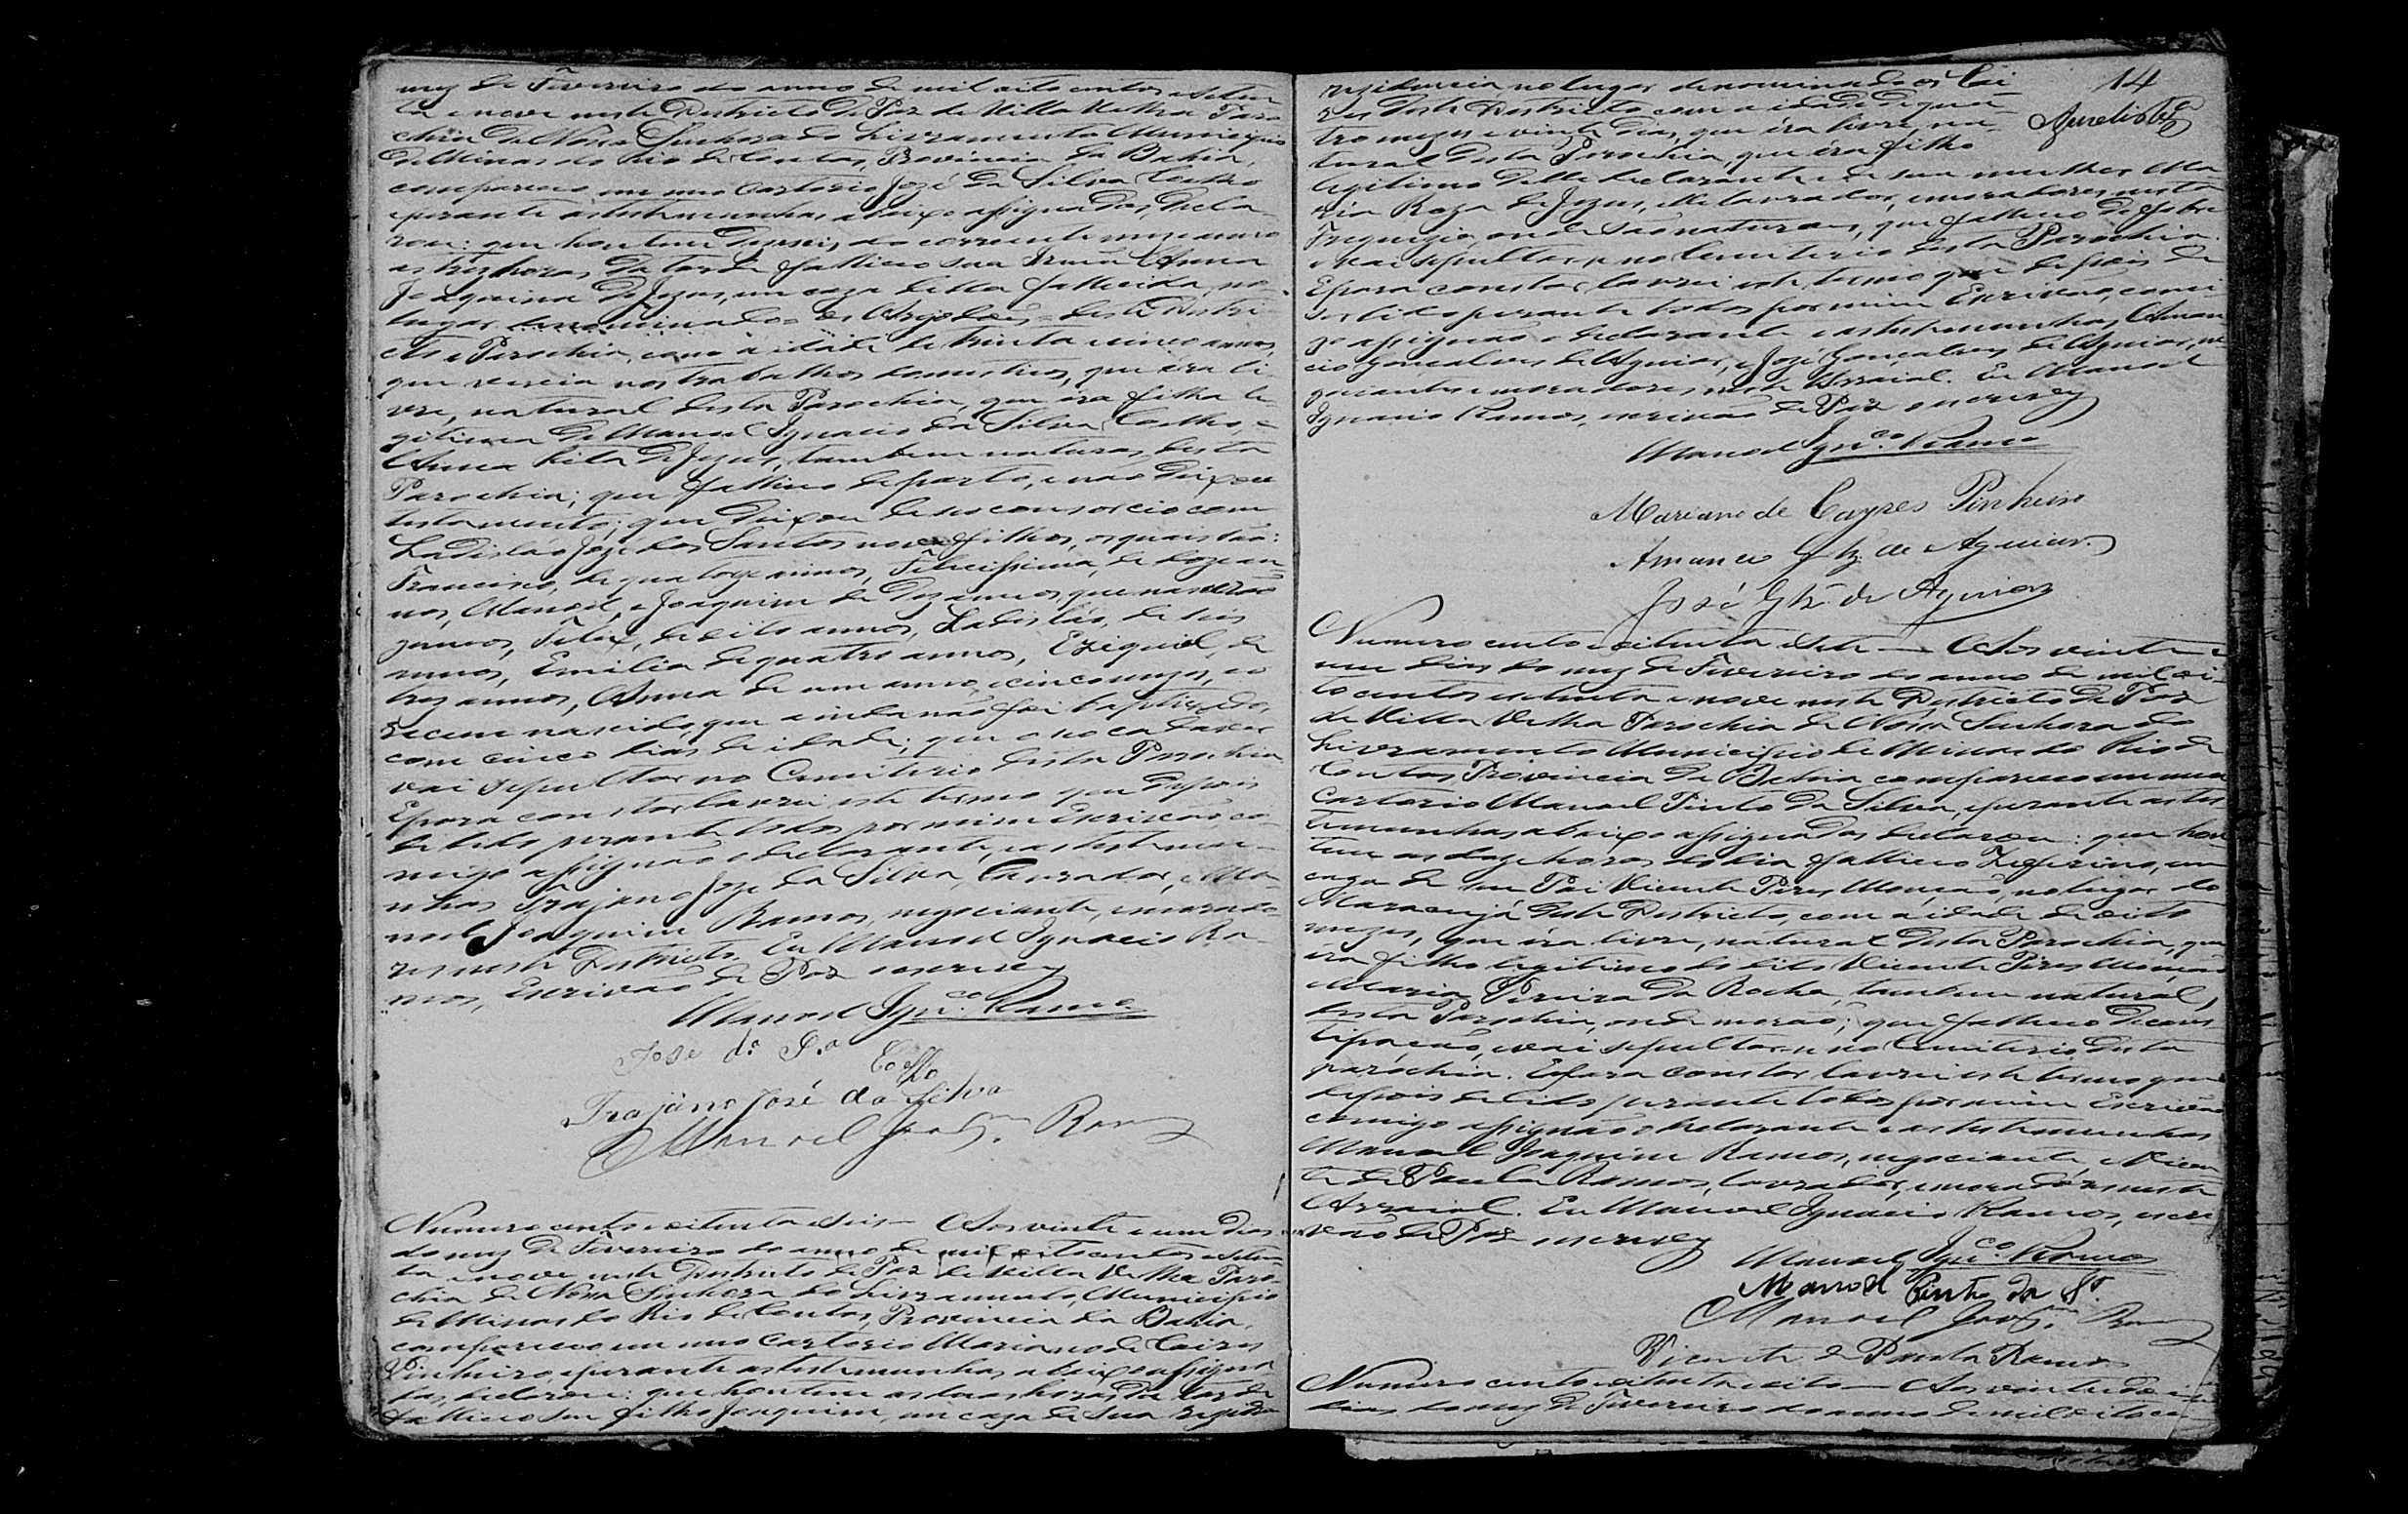 mez de Fevereiro do anno de mil oito centos e seten
ta e nove neste Districto de Paz de Villa Velha Paro
chia de Nossa Senhora do Livramento Municipio
de Minas do Rio de Contas, Provincia da Bahia,
compareceo em meu Cartorio José da Silva Coelho
e perante as testemunhas abaixo assignadas, decla-
rou: que hontem dezeseis do corrente mez e anno
as tres horas da tarde falleceo sua Irmã Anna
Joaquina de Jezus, em caza della fallecida, no
lugar denominado os Algodões deste Distri
cto e Parochia, com a idade de trinta e cinco annos,
que vivia nos trabalhos domesticos, que éra li-
vre, natural desta Parochia, que éra filha le-
gitima de Manoel Ignacio da Silva Coelho, e
Anna Rita de Jezus, tambem naturaes desta
Parochia; que falleceo de parto, e não deixou
testamento; que deixou de seu consorcio com
Ladisláo José dos Santos nove filhos, os quais são:
Francisco, de quatorze annos, Felicissima, de doze an-
nos, Manoel, e Joaquim de dez annos, que nascerão
gemeos, Felix, de oito annos, Ladisláo, de seis
annos, Emilia de quatro annos, Eziquiel, de
trez annos, Anna de um anno e cinco mezes, e o
recem nascido que ainda não foi baptizado,
com cinco dias de idade; que o seo cadaver
vai sepultar no Cemiterio desta Parochia
E para constar lavrei este termo que depois
de lido perante todos por mim Escrivão, co-
migo assignão o declarante, e as testemu-
nhas Trajano José da Silva, lavrador, e Ma-
noel Joaquim Ramos, negociante, morado-
res neste Districto. Eu Manoel Ignacio Ra-
mos, Escrivão de Paz escrevy
Manoel Ignco. Ramos
Jose da Sa.
Coelho
Trajano José da Silva
Manoel Joaqm. Ramos
Numero cento e oitenta e seis — Aos vinte e um dias
do mez de Fevereiro do anno de mil oito centos e seten
ta e nove neste Districto de Paz de Villa Velha Paro-
chia de Nossa Senhora do Livramento, Municipio
de Minas do Rio de Contas, Provincia da Bahia,
compareceo em meu Cartorio Mariano de Caires
Pinheiro, e perante as testemunhas abaixo assigna
das, declarou: que hontem as duas horas da tarde
falleceo seu filho Joaquim, em caza de sua rezida
14
rezidencia no lugar denominado os Cai
res deste Districto com a idade de qua-
tro mezes e vinte dias, que éra livre, na-
tural desta Parochia, que éra filho
legitimo delle declarante e de sua mulher Ma
ria Roza de Jezus, elle lavrador, e moradores nesta
Freguezia, onde são naturaes, que falleceo de febre
e vai sepultar-se no Cemiterio desta Parochia.
E para constar lavrei este termo que depois de
ser lido perante todos por mim Escrivão, comi-
go assignão o declarante e as testemunhas, Aman
cio Gonçalves de Aguiar, e José Gonçalves de Aguiar, ne
gociantes e moradores neste Arraial. Eu Manoel
Ignacio Ramos, escrivão de Paz escrevy
Manoel Ignco. Ramos
Mariano de Cayres Pinheiro
Amancio Glz. de Aguiar
José Glz. de Aguiar
Numero cento e oitenta e sete — Aos vinte e
um dias do mez de Fevereiro do anno de mil oi-
to centos e setenta e nove neste Districto de Paz
de Villa Velha Parochia de Nossa Senhora do
Livramento Municipio de Minas do Rio de
Contas Provincia da Bahia compareceo em meu
Cartorio Manoel Pinto da Silva, e perante as tes
temunhas abaixo assignadas declarou: que hon
tem as doze horas do dia falleceo Zeferino, em
caza de seu Pai Vicente Pires Monção, no lugar do
Maracujá deste Districto, com a idade de oito
mezes, que éra livre, natural desta Parochia, que
éra filho legitimo do dito Vicente Pires Monção
e Maria Pereira da Rocha, tambem naturaes
desta Parochia, onde morão; que falleceo de cons
tipação, e vai sepultar-se no Cemiterio desta
parochia. E para constar lavrei este termo que
depois de lido perante todos por mim Escrivão
comigo assignão o declarante e as testemunhas
Manoel Joaquim Ramos, negociante, e Vicen
te de Paula Ramos, lavrador, e moradores neste
Arraial. Eu Manoel Ignacio Ramos, escri
vão de Paz escrevy
Manoel Ignco. Ramos
Manoel Pinto da Sa.
Manoel Joaqm. Ramos
Vicente de Paula Ramos
Numero cento e oitenta e oito — Aos vinte e dois
dias do mez de Fevereiro do anno de mil oito cen